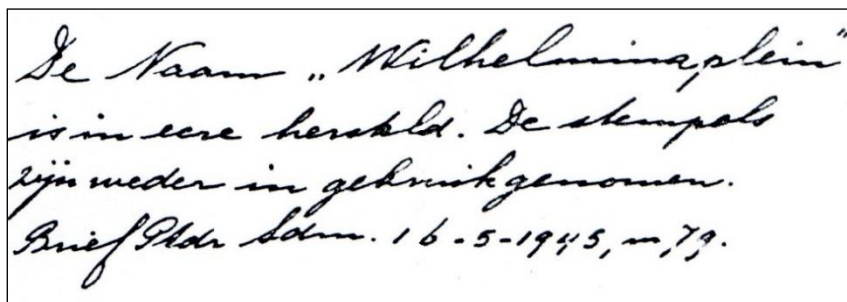 De Naam „Wilhelminaplein”
is in eere hersteld. De stempels
zijn weder in gebruik genomen.
Brief Ptdr Adm. 16-5-1945,